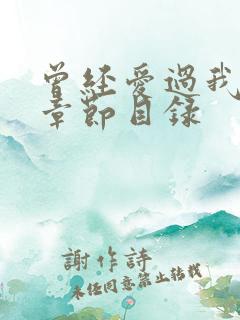 曾经爱過我
章節目錄
謝作詩
未经同意禁止轉載